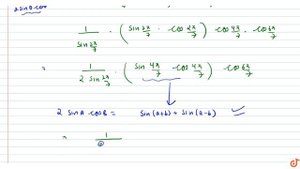 2 sinθ cosθ
1 / sin 2π/7 · ( sin 2π/7 · cos 2π/7 ) · cos 4π/7 · cos 6π/7
= 1 / 2 sin 2π/7 · ( sin 4π/7 · cos 4π/7 ) cos 6π/7
2 sin A cos B = sin (a+b) + sin (a-b)
= 1 /